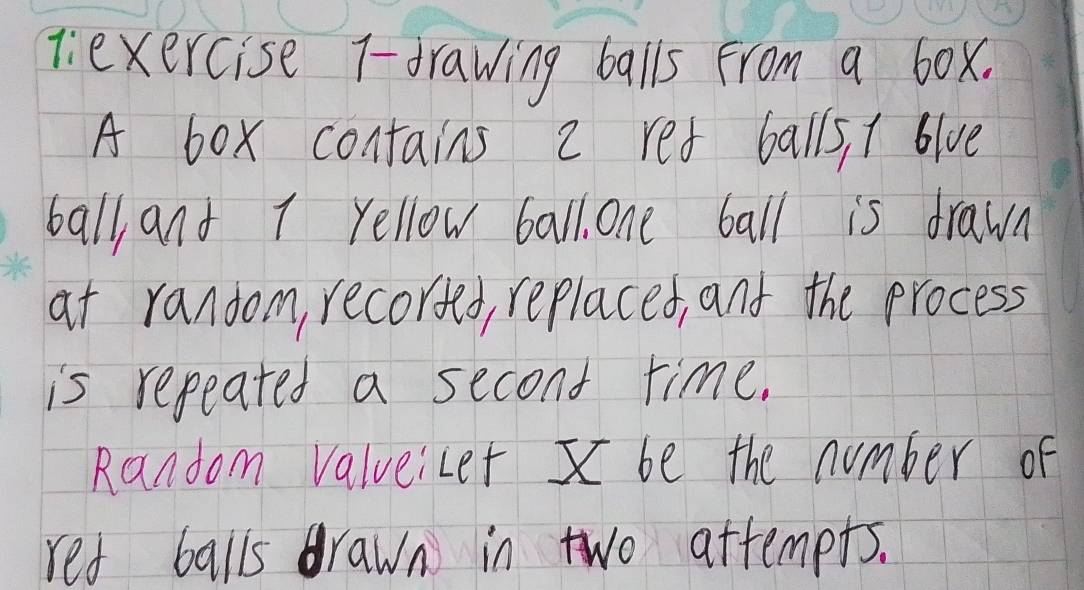 1: exercise 1-drawing balls From a box.
A box contains 2 red balls, 1 blue
ball, and 1 Yellow ball. One ball is drawn
at random, recorded, replaced, and the process
is repeated a second time.
Random value: Let X be the number of
red balls drawn in two attempts.